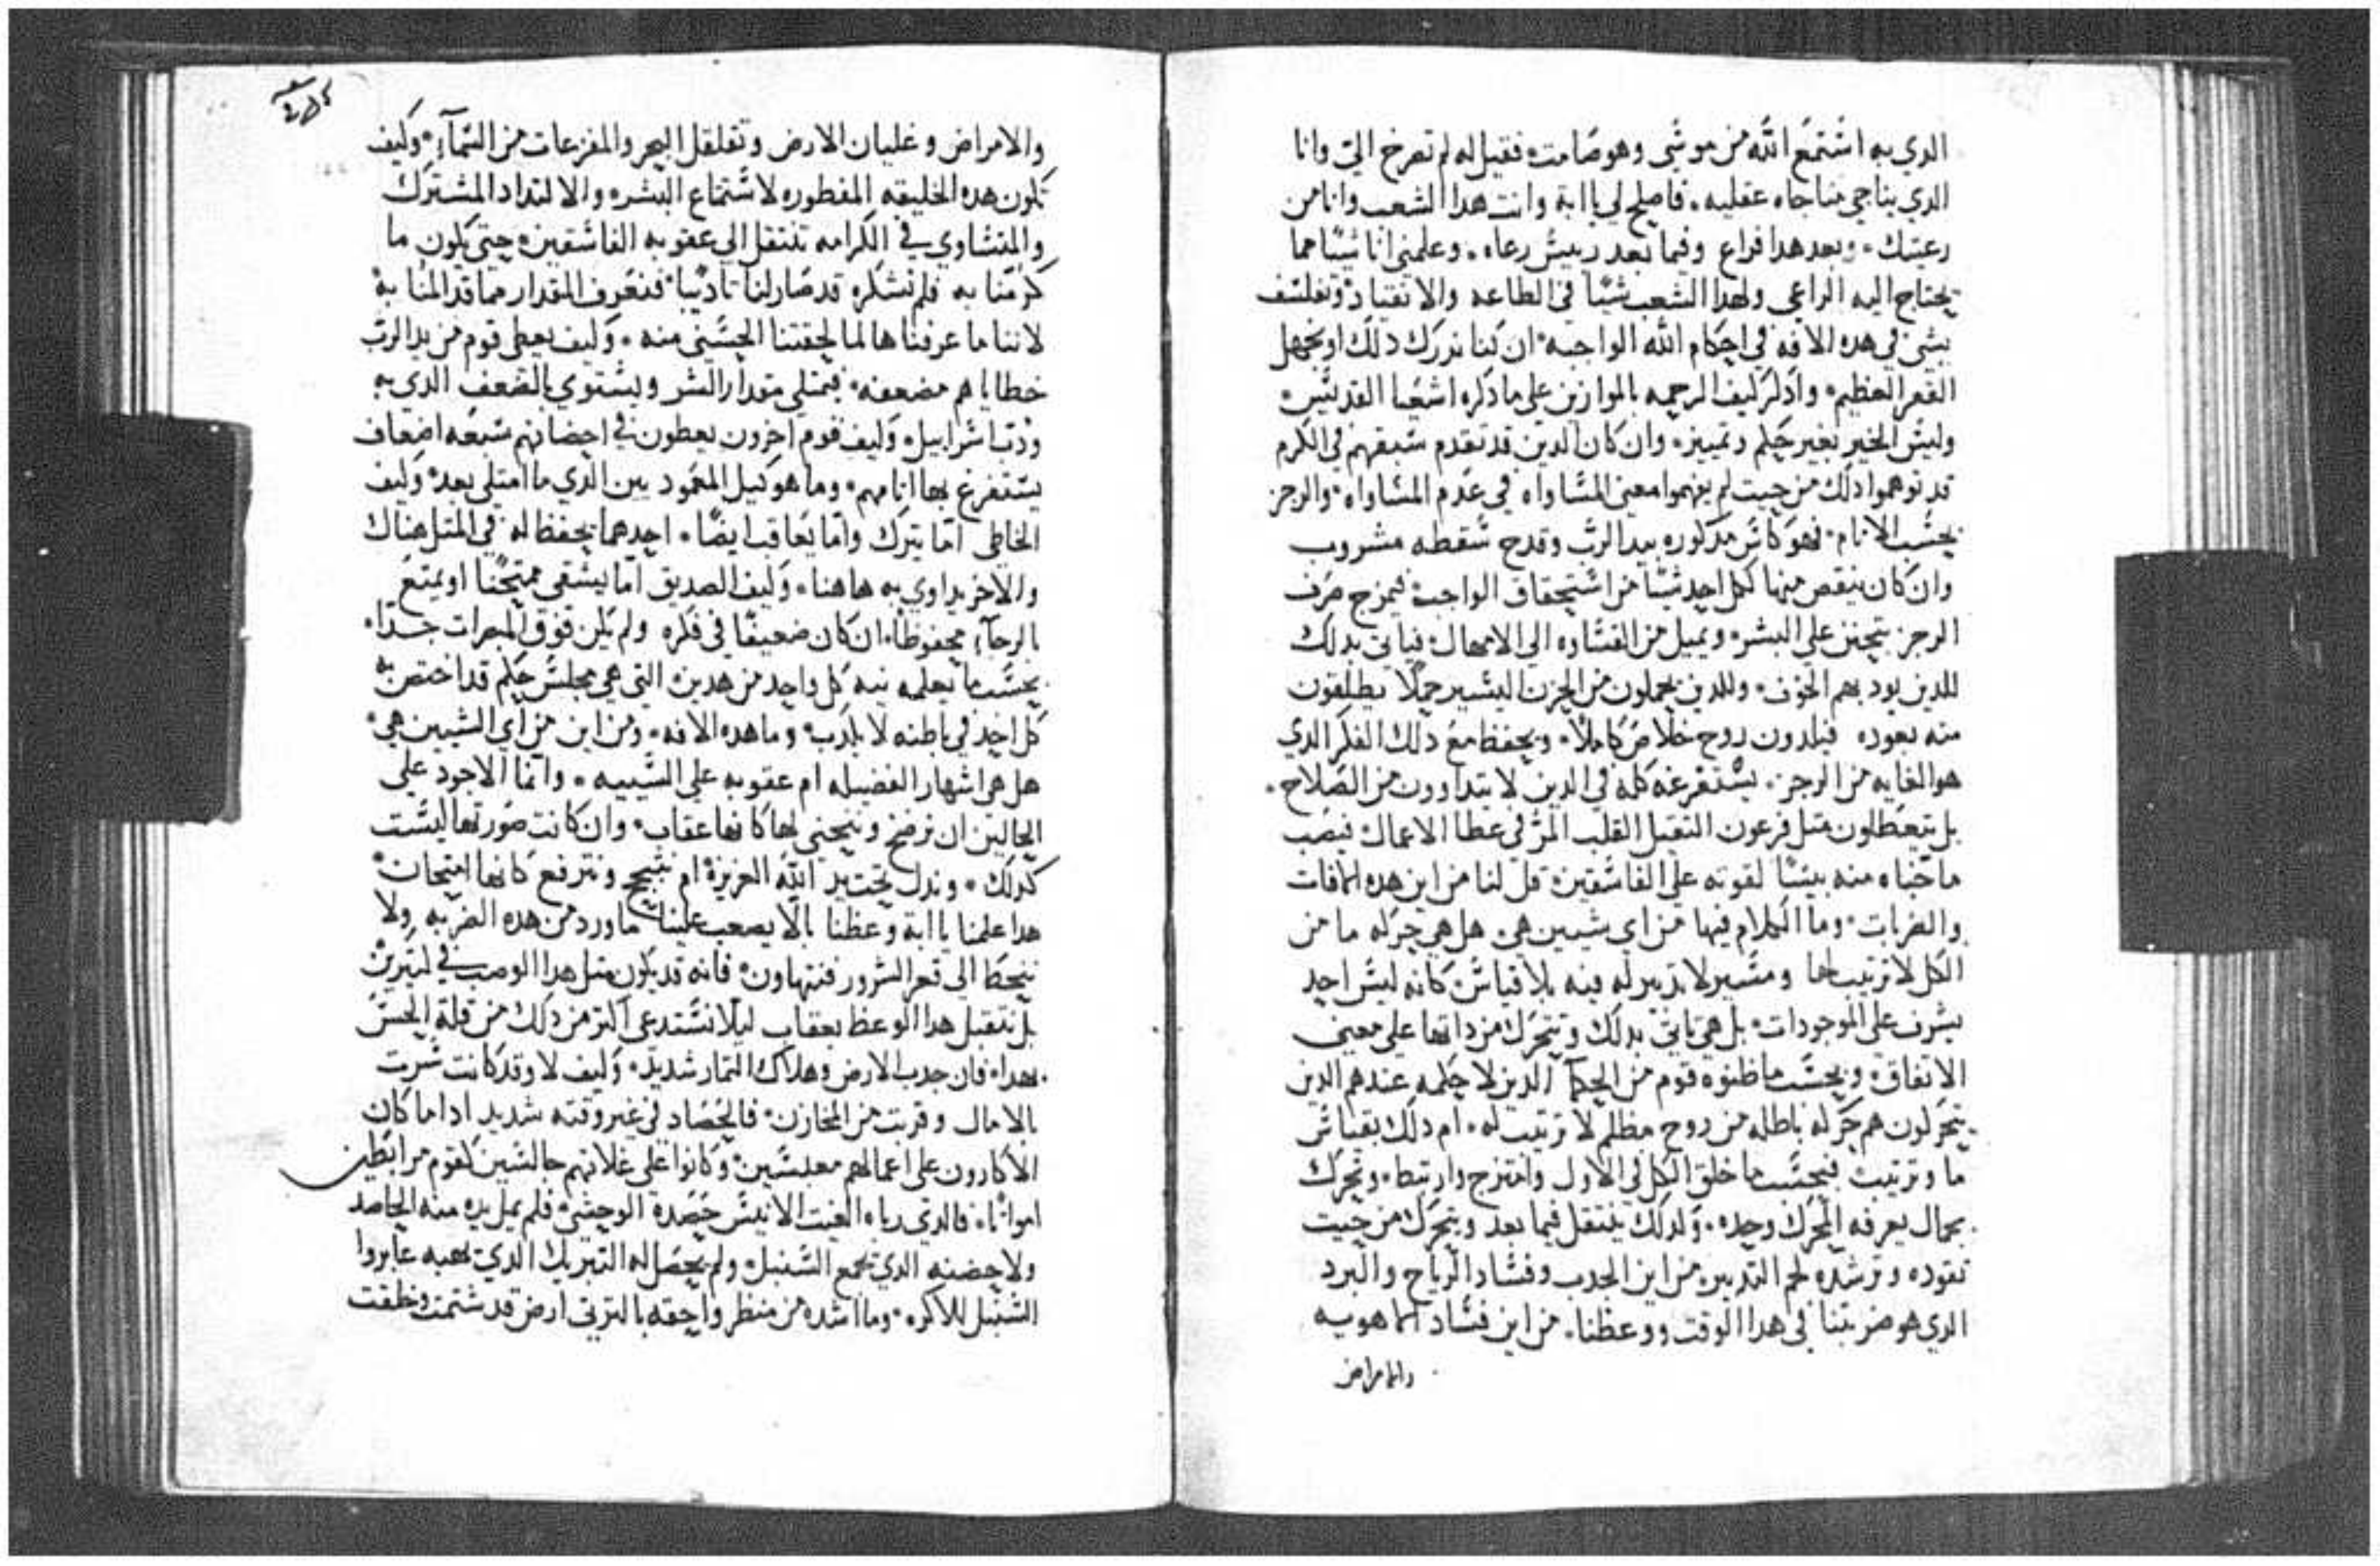 الدي به اشتمع الله من موشي وهو صامت فقيل له لم تصرخ الي وانا
الدي يناجي مناجاه عقليه. فاصلح لي يا ابة وانت هدا الشعب وانا من
رعيتك. وبعد هدا فراع وفيما بعد رييش رعاه. وعلمني انا شيًا مما
يحتاج اليه الراعي ولهدا الشعب شيًا في الطاعه والانقياد وتفلشف
بشي في هده الافه في احكام الله الواجبه ان كنا ندرك دلك او نجهل
القعر العظيم وادكر كيف الرحمه بالموازين علي ما دكره اشعيا القديش
وليش الخير بغير حكم وتمييز. وان كان الدين قد تقدم شبقهم في الكرم
قد توهموا دلك من حيت لم يفهموا معني المشاواه في عدم المشاواه والرجز
بحشب الاتام فهو كاش مدكوره بيد الرب وقدح شقطه مشروب
وان كان ينقص منها لكل احد شيًا من اشتحقاق الواجب فيمزج صرف
الرجز بتحنن علي البشر ويميل من القشاوه الي الامهال فياتي بدلك
للدين يودبهم الخوف وللدين يحملون من الحزن اليشير حملًا يطلقون
منه بعوده فيلدون روح خلاص كاملًا ويحفظ مع دلك الفكر الدي
هو الغايه من الرجز. يشتفرغه كله في الدين لا يتداوون من الصلاح.
بل يتعطلون متل فرعون التقيل القلب المر في عطا الاعمال فيصب
ما خباه منه بيشًا لقوته علي الفاشقين قل لنا من اين هده الافات
والضربات وما الكلام فيها من اي شيين هي هل هي حركه ما من
الكل لا ترتيب لها ومشير لا تدبير له فيه بلا قياش كانه ليش احد
يشرف علي الموجودات بل هي تاتي بدلك وتتحرك من داتها علي معني
الاتفاق وبحشب ما ظنوه قوم من الحكما الدين لا حكمه عندهم الدين
يتحركون هم حركه باطله من روح مظلم لا ترتيب له. ام دلك بقياش
ما وترتيب فبحشب ما خلق الكل في الاول وامتزج وارتبط. وتحرك
بحال يعرفه المحرك وحده. ولدلك ينتقل فيما بعد ويتحرك من حيت
تقوده وترشده لجم التدبير من اين الجدب وفشاد الرياح والبرد
الدي هو ضربتنا في هدا الوقت ووعظنا. من اين فشاد الاهويه
والامراض
والامراض وغليان الارض وتقلقل البحر والمفزعات من الشمآء وكيف
تكون هده الخليقه المفطوره لاشتمتاع البشر والالتداد المشترك
والمتشاوي في الكرامه تنتقل الي عقوبه الفاشقين حتي يكون ما
كرمنا به فلم نشكره قد صار لنا تاديبًا فنعرف المقدار مما قد المنا به
لاننا ما عرفناها لما لحقتنا الحشني منه. وكيف يعطي قوم من يد الرب
خطاياهم مضعفه فيمتلي مقدار الشر ويشتوي بالضعف الدي به
ودب اشراييل وكيف قوم اخرون يعطون في احضانهم شبعه اضعاف
يشتفرغ بها اتامهم وما هو كيل المعمود بين الدي ما امتلي بعد وكيف
الخاطي اما يترك واما يعاقب ايضًا. احدهما يحفظ له في المتل هناك
والاخر يداوي به هاهنا. وكيف الصديق اما يشقي ممتحنًا او يمتع
بالرخآء محفوظًا. ان كان ضعيفًا في فكره ولم يكن فوق المبصرات جدًا.
بحشب ما يعلمه نيه كل واحد من هدين التي هي مجلش حكم قد اختص به
كل احد في باطنه لا يكدب وما هده الافه ومن اين من اي الشيين هي
هل هي اشهار الفضيله ام عقوبه علي الشييه. وانما الاجود علي
الحالين ان نرضخ وننحني لها كانها عقاب وان كانت صورتها ليشت
كدلك. وندل تحت يد الله العزيزه ام نتبجح ونترفع كانها امتحان
هدا علمنا يا ابة وعظنا بالا يصعب علينا ما ورد من هده الضربه ولا
ننحط الي قعر الشرور فنتهاون فانه قد يكون متل هدا الوصب في كتيرين
بل نتقبل هدا الوعظ بعقاب ليلا نشتدعي اكتر من دلك من قله الحش
بهدا. فان جدب الارض وهلاك التمار شديد. وكيف لا وقد كانت شرت
بالامال وقربت من المخازن فالحصاد في غير وقته شديد ادا ما كان
الاكارون علي اعمالهم معبشين وكانوا علي غلاتهم جالشين كقوم مرابطين
امواتا. فالدي رباه الغيت الانيش حصده الوحشي فلم يمل يده منه الحاصد
ولا حضنه الدي يجمع الشنبل ولم يحصل له التبريك الدي يهبه عابروا
الشنبل للاكره. وما اشده من منظر واحقه بالترتي ارض قد شتمت وخلقت